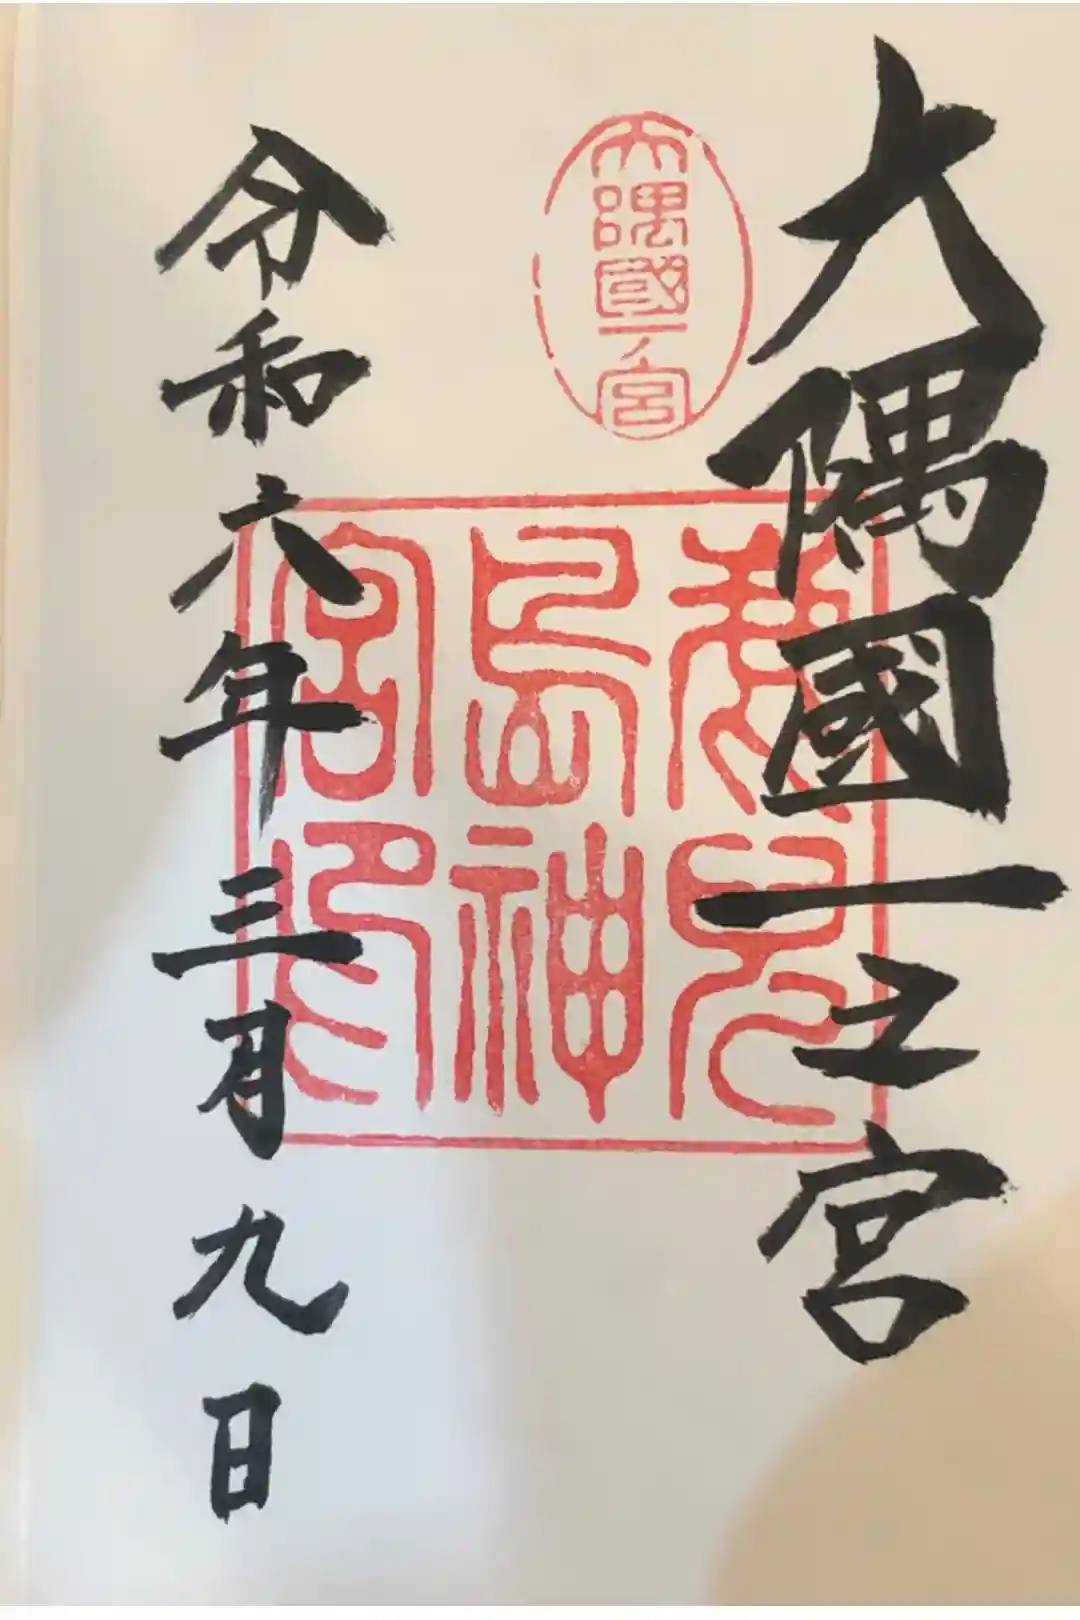 大隅國一之宮
大隅國一ノ宮
鹿兒
島神
宮印
令和六年三月九日